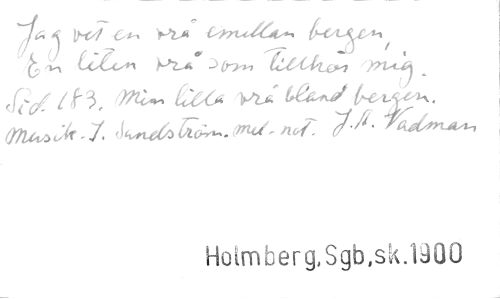 Jag vet en vrå emellan bergen,
En liten vrå som tillhör mig.
Sid. 183. Min lilla vrå bland bergen.
Musik. I. Sandström. mel-not. J.A. Wadman
Holmberg,Sgb,sk.1900